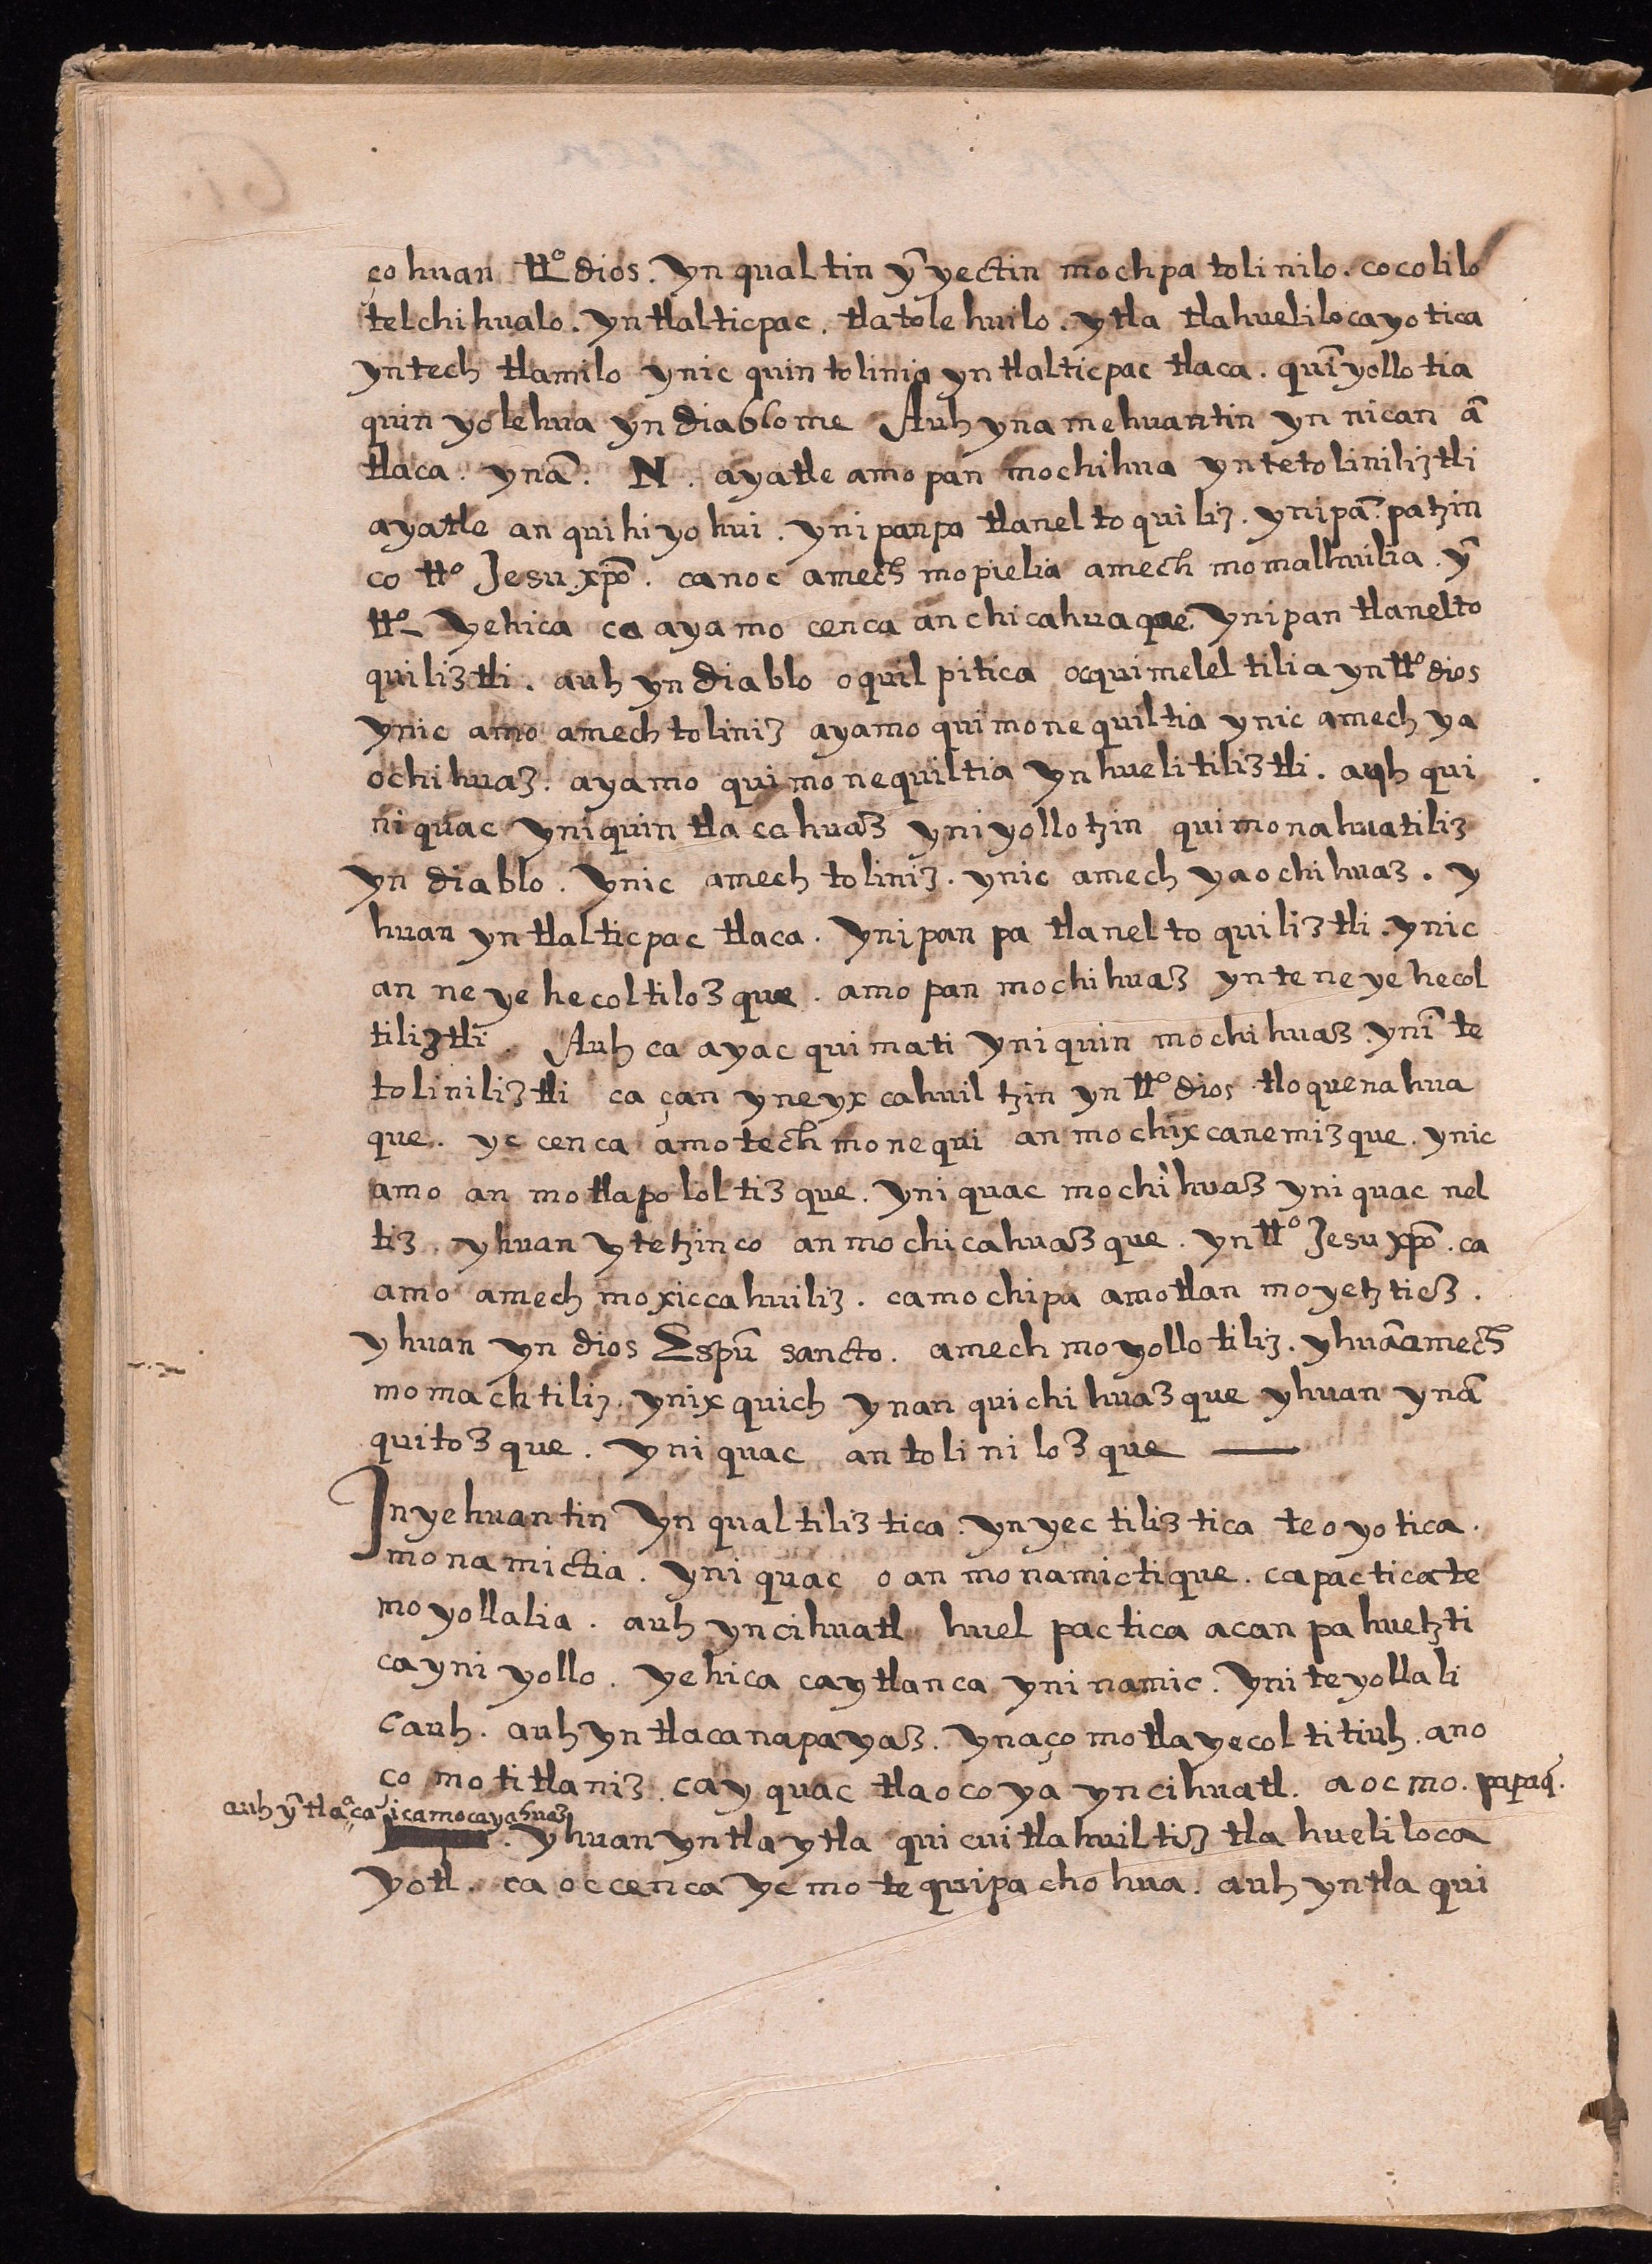 ço huan tt̶o dios. yn qualtin ỹ yectin mochpa tolinilo. cocolilo
telchihualo. yn tlalticpac. tlatolehuilo. ytla tlahuelilocayotica
yntech tlamilo ynic quin tolinia yn tlalticpac tlaca. quĩyollotia
quin yolehua yn diablome Auh yn amehuantin yn nican ã
tlaca. ynã. N. ayatle amopan mochihua yn tetoliniliztli
ayatle anquihiyohui. ynipanpa tlaneltoquiliz. ynipã.patzin
co tt̶o Jesu.xpõ. ca noc amech mopielia amech momalhuilia. ỹ
tt̶o yehica ca ayamo cenca anchicahuaque. ynipan tlanelto
quiliztli. auh yn diablo oquilpitica oquimeleltilia yn tt̶o dios
ynic amo amech toliniz ayamo quimonequiltia ynic amech ya
ochihuaz. ayamo quimonequiltia yn huelitiliztli. auh qui
niquac yniquin tlacahuaz yniyollotzin quimonahuatiliz
yn diablo. ynic amech toliniz. ynic amech yaochihuaz. y
huan yn tlalticpac tlaca. ynipanpa tlaneltoquiliztli. ynic
an neyehecoltilozque. amopan mochihuaz yn teneyehecol
tiliztli Auh ca ayac quimati yniquin mochihuaz. ynĩ te
toliniliztli ca çan yneyxcahuiltzin yn tt̶o dios tloquenahua
que. yc cenca amotech monequi anmochixcanemizque. ynic
amo anmotlapololtizque. yniquac mochìhuaz yniquac nel
tiz. yhuan ytetzinco anmochicahuazque. yn tt̶o Jesu xpõ. ca
amo amech moxiccahuiliz. ca mochipa amotlan moyetzties.
yhuan yn dios Espũ sancto. amech moyollotiliz. yhuã amech
momachtiliz. ynixquich ynan quichihuazque yhuan ynã
quitozque. yniquac antolinilozque —
Inyehuantin yn qualtiliztica. yn yectiliztica teoyotica.
monamictia. yniquac oanmonamictique. ca pacticate
moyollalia. auh yn cihuatl huel pactica acan pahuetzti
ca yni yollo. yehica ca ytlanca yninamic. yniteyollali
cauh. auh yn tlacanapayaz. ynaço motlayecoltitiuh. ano
ço motitlaniz. ca yquac tlaocoya yn cihuatl. aocmo. papaq̃.
auh ỹ tlaoca icamocayahuaz
. yhuan yntla ytla quicuitlahuiltiz tlahueliloca
yotl. ca occenca yc motequipachohua. auh yntla qui